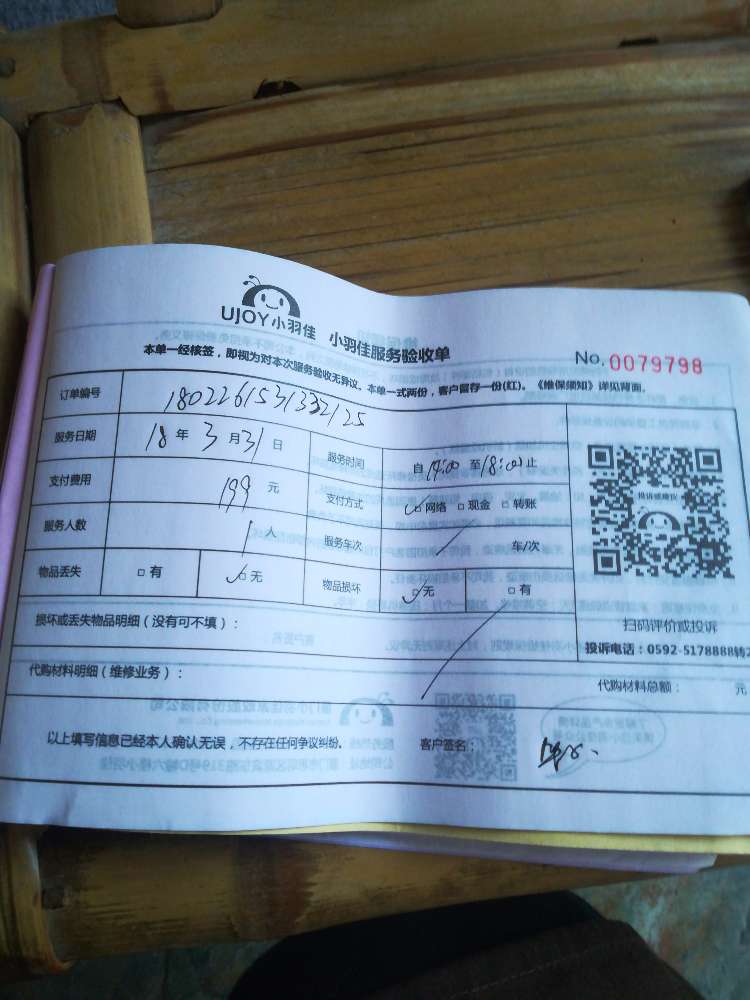 UJOY小羽佳 小羽佳服务验收单
No. 0079798
本单一经核签，即视为对本次服务验收无异议。本单一式两份，客户留存一份(红)。《维保须知》详见背面。
订单编号 1802261531332125
服务日期 18 年 3 月 31 日 服务时间 自 14:00 至 18:00 止
支付费用 199 元 支付方式 ☑网络 □现金 □转账
服务人数 1 人 服务车次 / 车/次
物品丢失 □有 ☑无 物品损坏 ☑无 □有
投诉或建议
扫码评价或投诉
投诉电话：0592-5178888转2
损坏或丢失物品明细（没有可不填）：
代购材料明细（维修业务）： 代购材料总额： 元
以上填写信息已经本人确认无误，不存在任何争议纠纷。 客户签名：